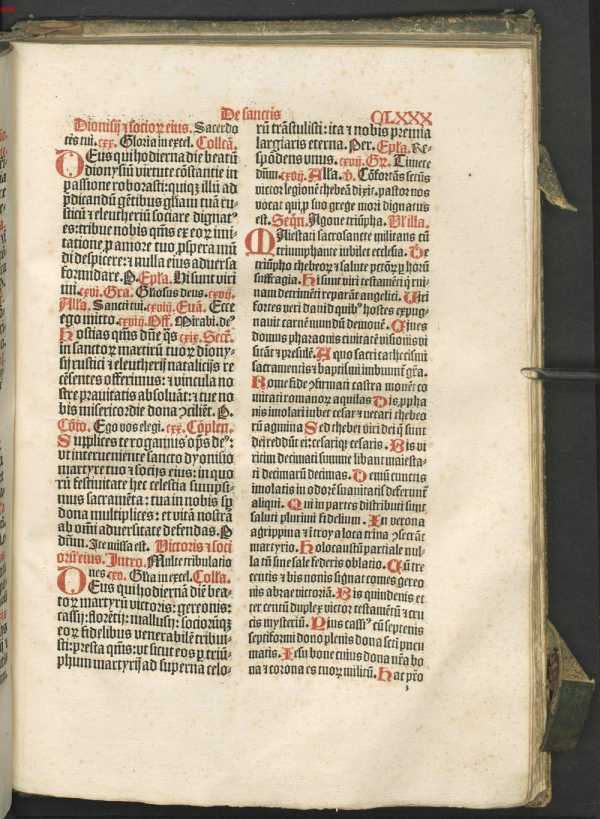 De sanctis
CLXXX
Dionisij ⁊ socioꝝ eius. Sacerdo
tes tui. cxx. Gloria in excel. Collecta.
DEus qui hodierna die beatū
Dionysiū virtute cōstantie in
passione roborasti: quiqꝫ illū ad
p̄dicandū gētibus gl̄iam tuā ru-
sticū ⁊ eleutheriū sociare dignatꝰ
es: tribue nobis qs̄ ex eoꝝ imi
tatione ꝓ amore tuo ꝓspera mūdi
di despicere: ⁊ nulla eius aduersa
formidare. P. Ep̄la. Hi sunt viri
mi. cxvi. Gra. Gl̄iosus deus. cxvij.
Alla. Sancti tui. cxviij. Euā. Ecce
ego mitto. cxviij. Off. Mirabi. deꝰ
Hostias qs̄ dn̄e qs̄ cxix. Secr̄.
in sanctoꝝ martirū tuoꝝ diony-
sij rustici ⁊ eleutherij natalicijs re
cēsentes offerimus: ⁊ vincula no
stre prauitatis absoluāt: ⁊ tue no
bis misericordie dona ꝯciliēt. P.
Cōio. Ego vos elegi. cxx. Cōplen.
Supplices te rogamus op̄s deꝰ:
vt interueniente sancto dyonisio
martyre tuo ⁊ socijs eius: in quo
rū festiuitate hec celestia sumpsi-
mus sacramēta: tua in nobis ꝓ
dona multiplices: et vitā nostrā
ab om̄i aduersitate defendas. P
Dn̄m. Ite missa est. Victoris ⁊ soci
orū eius. Intro. Multe tribulatio
nes cxo. Gl̄ia in excel. Colla.
DEus qui hodierna die bea-
toꝝ martyrū victoris: gereonis:
cassij: florētij: mallusij: sociorūqꝫ
eoꝝ fidelibus venerabilē tribui-
sti: presta qs̄: vt sicut eos ꝑ triū-
phum martyrij ad superna celo-
rū trāstulisti: ita ⁊ nobis premia
largiaris eterna. Per. Ep̄la. Re-
spōdens vnus. cxvij. Gr̄. Timete
dn̄m. cxvij. Alla. v. Cōfortās secūs
victor legionē thebeā dixit, pastor nos
vocat qui ꝓ suo grege mori dignatus
est. Seqn̄. Agone triūpha. V̄silla.
MAiestati sacrosancte militans cū
triumphante iubilet ecclesia. De
triūpho thebeoꝝ ⁊ salute pctōꝝ ꝑ horū
suffragia. Hi sunt viri testamēti q̄ rui-
nam detrimēti reparāt angelici. Viri
fortes veri dauid quibꝰ hostes expug-
nauit carnē mundū demonē. Qi nes
domus pharaonis ciuitatē visionis vi
sitāt ⁊ presulē. A quo sacri cathecismi vi
sacramentis ⁊ baptismi imbuunt gr̄a.
Rome fide ꝯfirmati castra mouēt co
mitati romanoꝝ aquilas Dis ꝓpha
nis imolari iubet cesar ⁊ necari thebeo
rū agmina Sed thebei viri dei q̄ sunt
dei reddūt ei: cesariqꝫ cesaris. Bis vi
ricim decimati summe libant maiesta-
ti decimarū decimas. Demū cunctis
imolatis in odorē suauitatis deferunt̄
aliqui. Qui in partes distribuūt sunt
saluti plurimi fidelium. In verona
agrippina ⁊ troya loca trina ꝯsecrāt
martyrio. Holocaustū partiale nul-
la tn̄ sine sale federis oblatio. Cū tre
centis ⁊ bis nonis signat comes gereo
nis abrae victoriā. Bis quindenis et
ter centū duplex victor testamētū ⁊ cru
cis mysteriū. Pius cassiꝰ cū septenis
septiformi dono plenis dona sc̄ti pneu
matis. Iesu bone cuius dona nr̄a bo
na ⁊ corona es tuoꝝ militū. Hac pr̄o